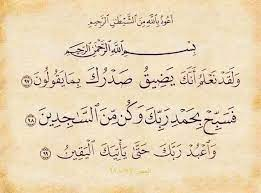 أعوذ بالله من الشيطن الرجيم
بسم الله الرحمن الرحيم
ولقد نعلم أنك يضيق صدرك بما يقولون ٩٧
فسبح بحمد ربك وكن من السجدين ٩٨
واعبد ربك حتى يأتيك اليقين ٩٩